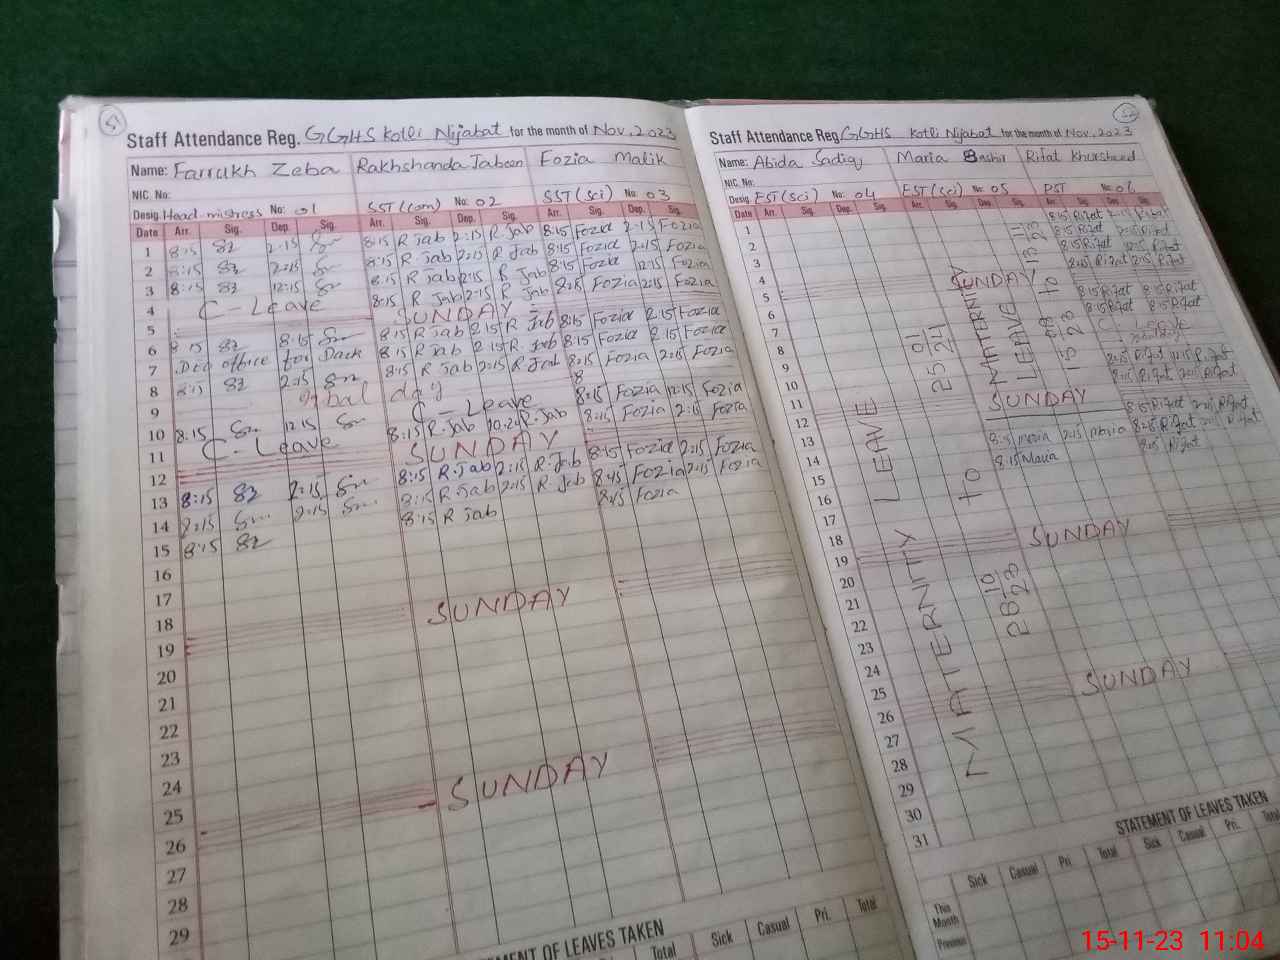 51
Staff Attendance Reg. GGHS Kotli Nijabat for the month of Nov, 2023
Name: Farrukh Zeba Rakhshanda Jabeen Fozia Malik
NIC. No:
Desig. Head mistress No: 01 SST (com) No: 02 SST (sci) No: 03
Date Arr. Sig. Dep. Sig. Arr. Sig. Dep. Sig. Arr. Sig. Dep. Sig.
1 8:15 2:15 8:15 R Jab 2:15 R Jab 8:15 Fozia 2:15 Fozia
2 8:15 2:15 8:15 R Jab 2:15 R Jab 8:15 Fozia 2:15 Fozia
3 8:15 12:15 8:15 R Jab 2:15 R Jab 8:15 Fozia 12:15 Fozia
4 C-Leave 8:15 R Jab 2:15 R Jab Fozia 2:15 Fozia
5 SUNDAY
6 8:15 R Jab 2:15 R Jab 8:15 Fozia 2:15 Fozia
7 office for 8:15 R Jab 2:15 R Jab 8:15 Fozia 2:15 Fozia
8 8:15 2:15 8:15 R Jab 2:15 R Jab 8:15 Fozia 2:15 Fozia
9 day
10 8:15 12:15 C-Leave 8:15 Fozia 12:15 Fozia
11 C-Leave 8:15 R.Jab R.Jab 8:15 Fozia 2:15 Fozia
12 SUNDAY
13 8:15 2:15 8:15 R.Jab 2:15 R.Jab 8:15 Fozia 2:15 Fozia
14 8:15 2:15 8:15 R Jab 2:15 R Jab 8:45 Fozia 2:15 Fozia
15 8:15 8:15 R Jab 8:45 Fozia
16
17
18
19 SUNDAY
20
21
22
23
24
25
26 SUNDAY
27
28
29
STATEMENT OF LEAVES TAKEN
Total Sick Casual Pri. Total
52
Staff Attendance Reg. GGHS Kotli Nijabat for the month of Nov, 2023
Name: Abida Sadiq Maria Bashir Rifat Khursheed
NIC. No:
Desig. EST (sci) No: 04 EST (sci) No: 05 PST No: 06
Date Arr. Sig. Dep. Sig. Arr. Sig. Dep. Sig. Arr. Sig. Dep. Sig.
1 8:15 Rifat 2:15 Rifat
2 8:15 Rifat 2:15 Rifat
3 8:15 Rifat 12:15 Rifat
4 8:15 Rifat 2:15 Rifat
5 SUNDAY
6 8:15 Rifat 8:15 Rifat
7 8:15 Rifat 8:15 Rifat
8 C-Leave
9 holiday
10 Rifat 12:15 Rifat
11 8:15 Rifat 2:15 Rifat
12 SUNDAY
13 8:15 Maria 2:15 Maria 8:15 Rifat 2:15 Rifat
14 8:15 Maria 8:15 Rifat
15
16
17
18
19 SUNDAY
20
21
22
23
24
25
26 SUNDAY
27
28
29
30
31
MATERNITY LEAVE
28 10 23 to 25 01 24
MATERNITY LEAVE
to
STATEMENT OF LEAVES TAKEN
Sick Casual Pri Total Sick Casual Pri. Total
This Month
Previous
15-11-23 11:04